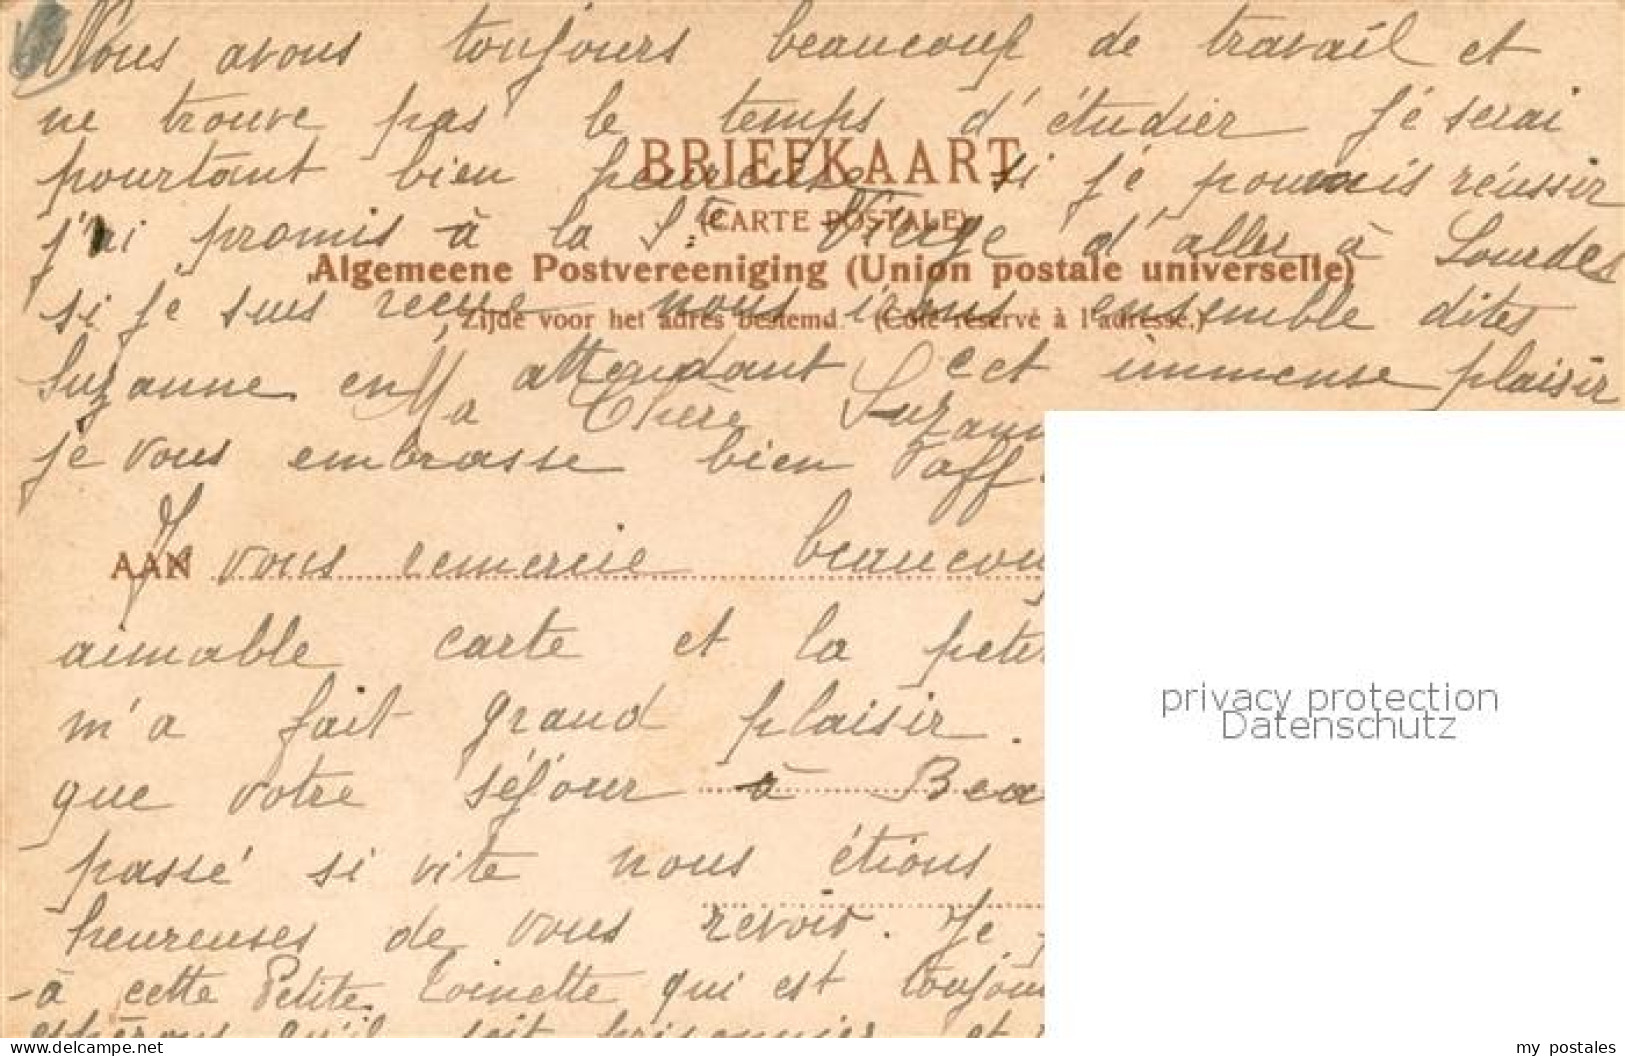 Nous avous toujours beaucoup de travail et
ne trouve pas le temps d'étudier je serai
BRIEFKAART
pourtant bien heureuse si je pouvais réussir
(CARTE POSTALE)
j'ai promis à la Ste Vierge d'aller à Lourdes
Algemeene Postvereeniging (Union postale universelle)
si je suis reçue nous irons ensemble dites
Zijde voor het adres bestemd. (Côté réservé à l'adresse.)
Suzanne en attendant cet immense plaisir
Ma Chère Suzann
je vous embrasse bien
AAN
Je vous remercie beaucou
aimable carte et la petit
m'a fait grand plaisir.
que votre séjour à Bea
passé si vite nous étions
heureuses de vous revoir. Je
à cette Petite Toinette qui est toujou
espérons qu'il soit prisonnier et
privacy protection
Datenschutz
www.delcampe.net
my_postales